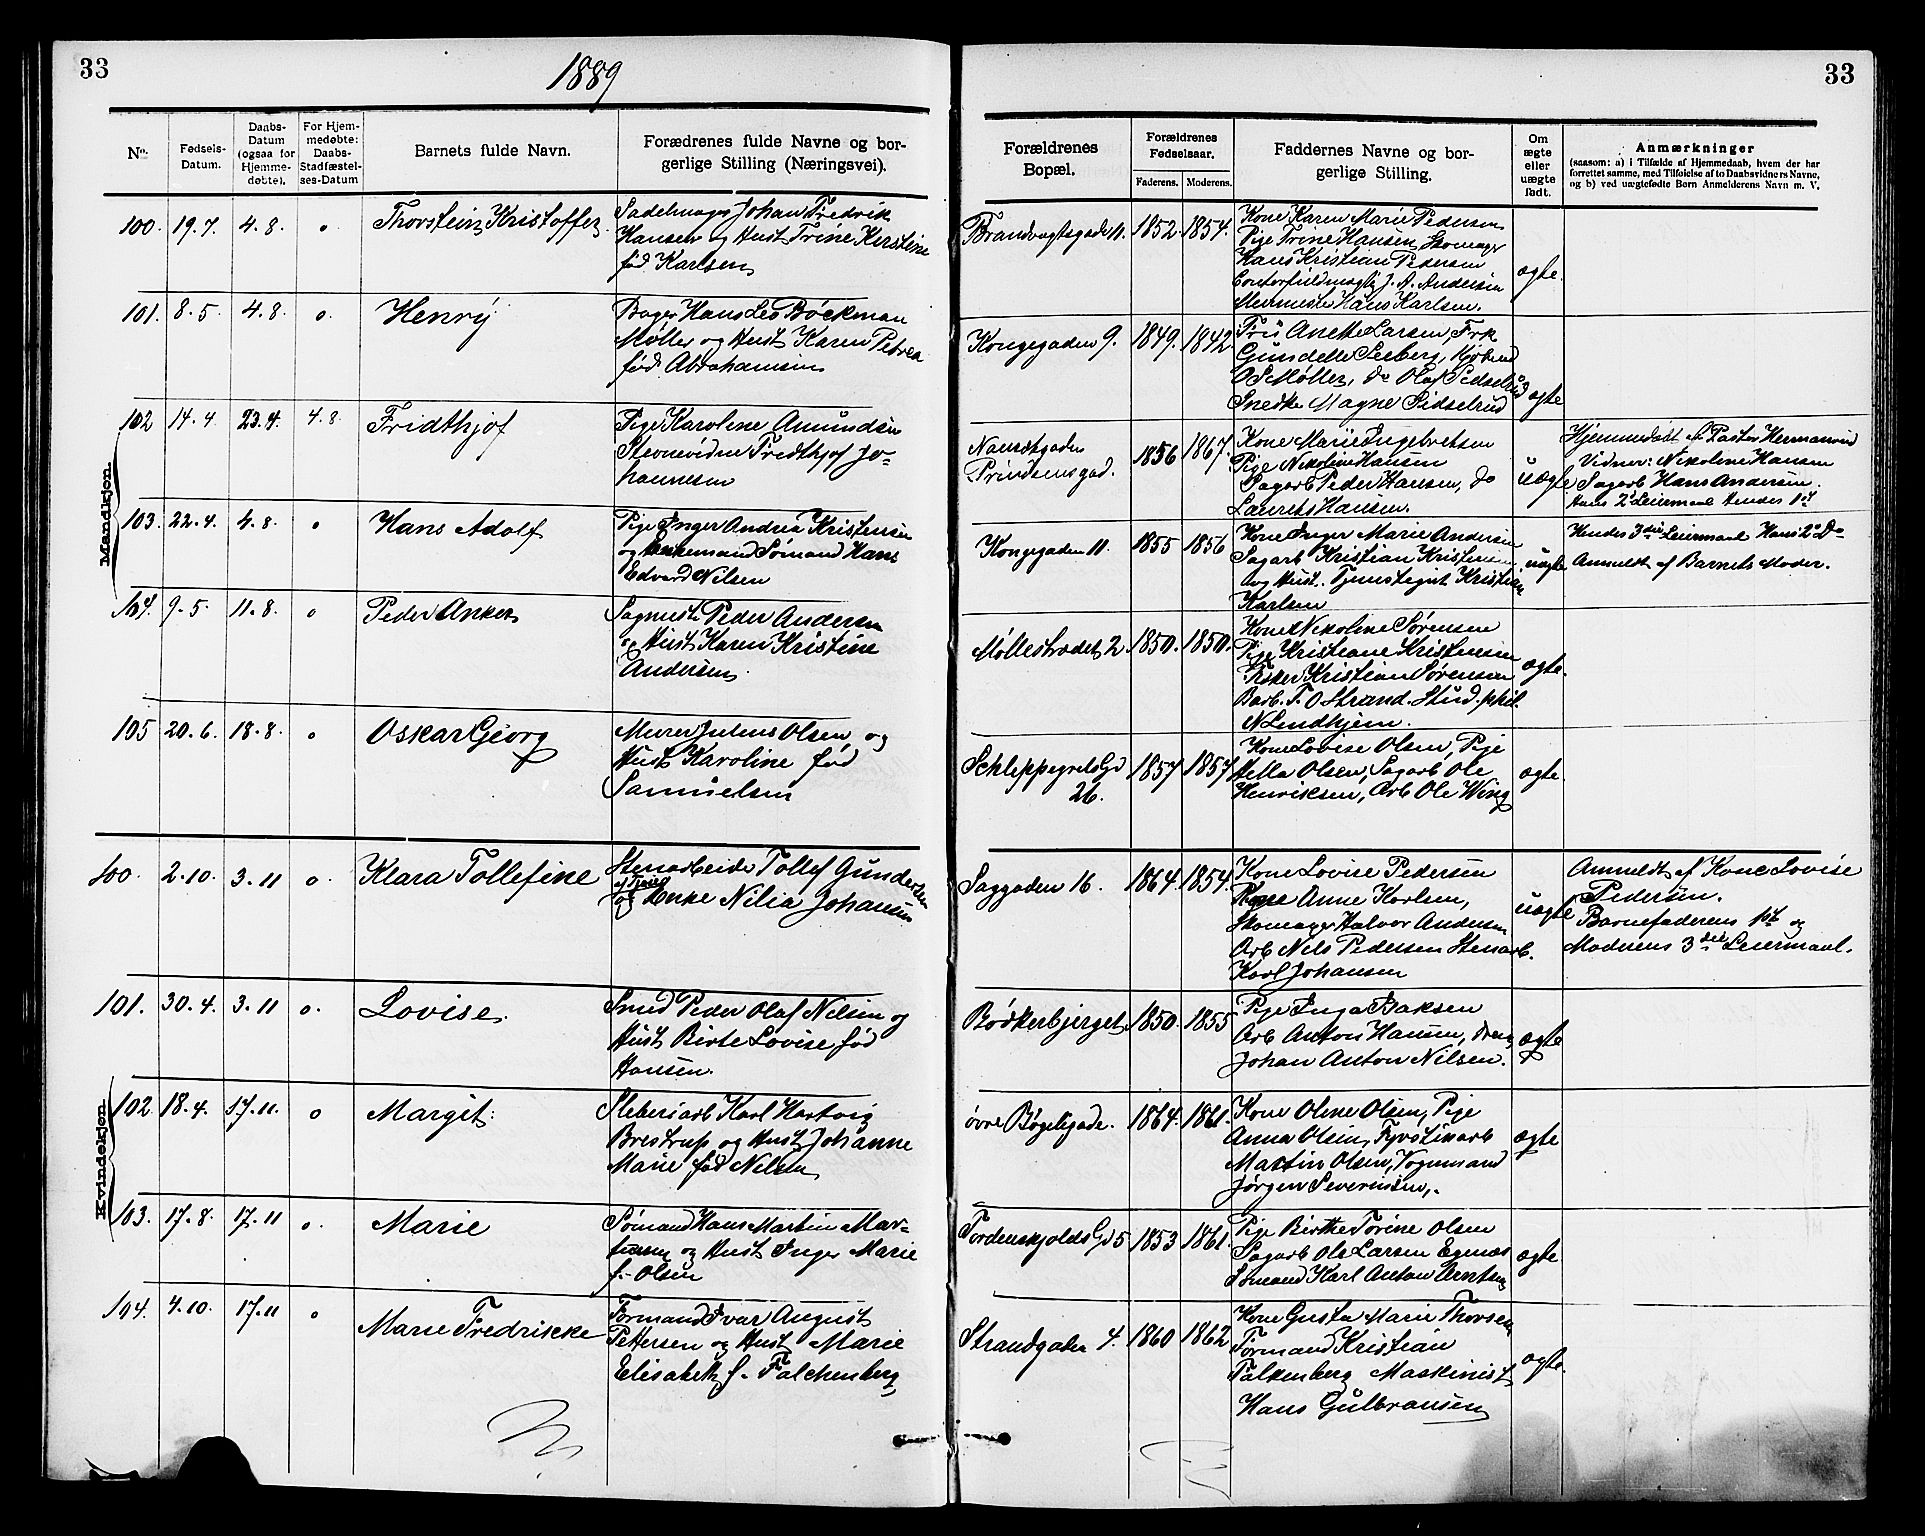 33
1889
33
No.
Fødsels-
Datum.
Daabs-
Datum
(ogsaa for
Hjemme-
døbte).
For Hjem-
medøbte:
Daabs-
Stadfæstel-
ses-Datum
Barnets fulde Navn.
Forædrenes fulde Navne og bor-
gerlige Stilling (Næringsvei).
Forældrenes
Bopæl.
Forældrenes
Fødselsaar.
Faderens.
Moderens.
Faddernes Navne og bor-
gerlige Stilling.
Om
ægte
eller
uægte
født.
Anmærkninger
(saasom: a) i Tilfælde af Hjemmedaab, hvem der har
forrettet samme, med Tilføielse af to Daabsvidners Navne,
og b) ved uægtefødte Børn Anmelderens Navn m. V.
Mandkjøn
100. 19.7. 4.8. o Thorstein Kristoffer
Sadelmager Johan Fredrik
Hansen og Hust Trine Kirstine
fød Karlsen
Brandvagtsgade 11. 1852. 1854.
Kone Karen Marie Pedersen
Pige Trine Hansen Skomager
Hans Kristian Pedersen
Contorfuldmægtig J. A. Andersen
Hans Karlsen.
ægte.
101. 8.5. 4.8. o. Henry
Bager Hans Leo Bøckman
Møller og Hust Karen Petrea
fød Abrahamsen
Kongegaden 9. 1849. 1842
Fru Anette Larsen, Frk
Seeberg,
O S Møller, do Olaf
Snedker Magne
ægte
102 14.4 23.4. 4.8. Fridthjof
Pige Karoline Amundsen
Stevnevidne Fridthjof Jo-
hannesen
Nansetgaden
Prindsensgad. 1856 1867.
Kone Marie Ingebretsen
Pige Nikoline Hansen
Sagarb Peder Hansen, do
Laurits Hansen.
uægte
Hjemmedøbt af Pastor
Vidner: Nikoline Hansen
Sagarb Hans Andersen.
Hans 2d Leiermaal Hendes 1st
103. 22.4. 4.8. o Hans Adolf
Pige Inger Andrea Kristensen
og Enkemand Sømand Hans
Edvard Nilsen
Kongegaden 11. 1855 1856
Kone Inger Marie Andersen
Sagarb Kristian Kristensen
og Hust. Kristian
Karlsen
uægte
Hendes 3die Leiermaal Hans 2d Do
Anmeldt af Barnets Moder.
104. 9.5. 11.8. o Peder Anker
Sagmest. Peder Andersen
og Hust Karen Kristine
Andersen.
Møllestrædet 2 1850. 1850.
Kone Nikoline Sørensen
Pige Kristiane Kristensen
Fisker Kristian Sørensen
Barb. T. O Strand. Stud. phil
N Lindhjem.
ægte.
105 20.6. 18.8. o Oskar Georg
Murer Julius Olsen og
Hust Karoline fød
Samuelsen
Schleppegrels Gd
26. 1857 1857
Kone Lovise Olsen, Pige
Olsen, Sagarb Ole
Henriksen, Arb Ole Wing
ægte.
Kvindekjøn
100. 2.10. 3.11 o. Klara Tollefine
Stenarbeider Tollef Gundersen
af
og Enke Nilia Johansen
Saggaden 16. 1864. 1854.
Kone Lovise Pedersen
Anne Karlsen,
Skomager Halvor Andersen
Arb Nils Pedersen Stenarb.
Karl Johansen
uægte
Anmeldt af Kone Lovise
Pedersen.
Barnefaderens 1st og
Moderens 3die Leiermaal.
101. 30.4. 3.11 o. Lovise.
Smed Peder Olaf Nilsen og
Hust Birte Lovise fød
Hansen.
Bødkerbjerget. 1850. 1855
Pige Inga Isaksen
Arb Anton Hansen, dreng
Johan Anton Nilsen.
ægte
102 18.4. 17.11. o Margit.
Sleberiarb Karl Hartvig
Brestrup og Hust Johanne
Marie fød Nilsen
øvre Bøgeligade. 1864. 1861.
Kone Oline Olsen, Pige
Anna Olsen, Fyrstikarb
Martin Olsen, Vognmand
Jørgen Severinsen.
ægte
103. 17.8. 17.11 o. Marie
Sømand Hans Martin Mar-
tinsen og Hust Inger Marie
f. Olsen
Tordenskjolds Gd 5 1853 1861.
Pige Birthe Torine Olsen
Sagarb Ole Larsen
Sømand Karl Anton Arntsen
ægte
104. 4.10. 17.11 o Marie Fredrikke
Formand Ivar August
Pettersen og Hust Marie
Elisabeth f. Falchenberg
Strandgaden 4. 1860 1862
Kone Gusta Marie Thorsen
Formand Kristian
Falkenberg Maskinist
Hans Gulbransen
ægte.